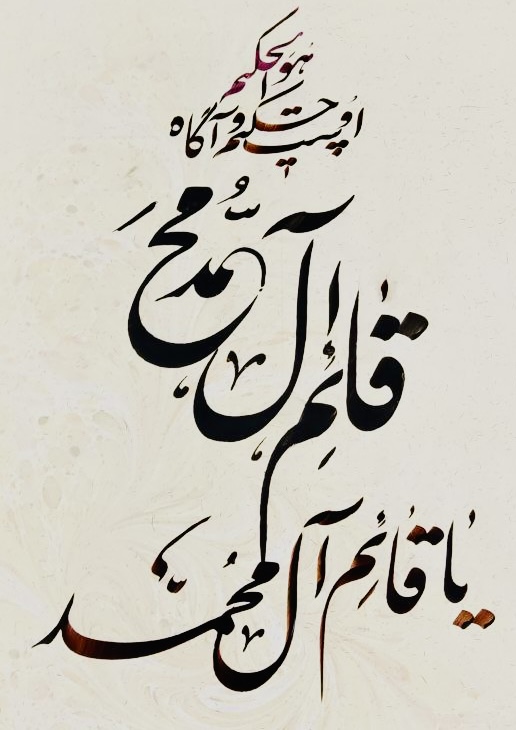 هو الحکیم
اوست حکیم و آگاه
قائم آل محمد
یا قائم آل محمد